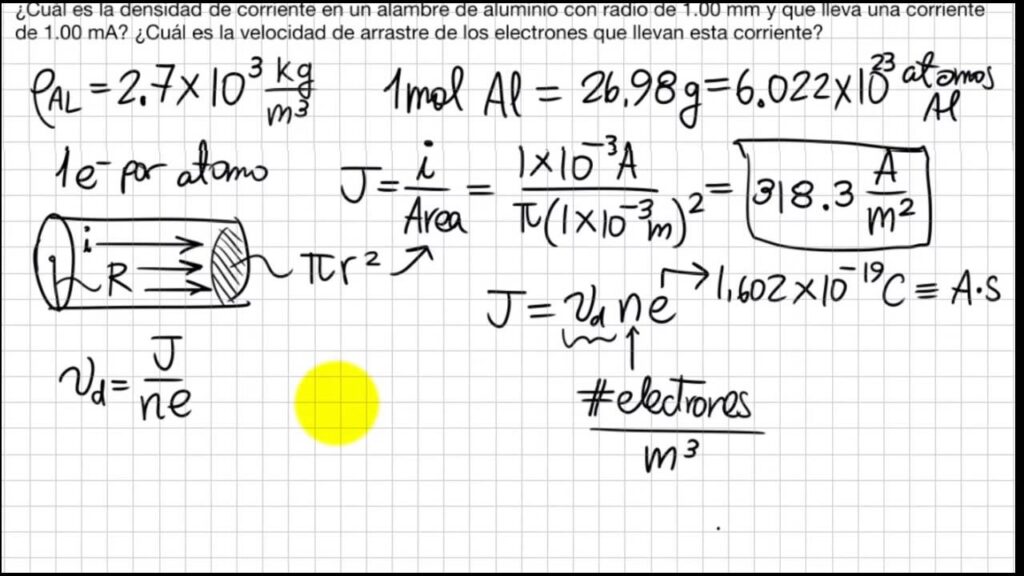 ¿Cuál es la densidad de corriente en un alambre de aluminio con radio de 1.00 mm y que lleva una corriente
de 1.00 mA? ¿Cuál es la velocidad de arrastre de los electrones que llevan esta corriente?
ρ_AL = 2.7×10³ kg/m³
1mol Al = 26.98g = 6.022×10²³ atomos Al
1e⁻ por atomo
J = i/Area = 1×10⁻³A/π(1×10⁻³m)² = 318.3 A/m²
i
R
πr²
J = v_d n e
1,602×10⁻¹⁹C ≡ A·s
v_d = J/ne
#electrores
m³